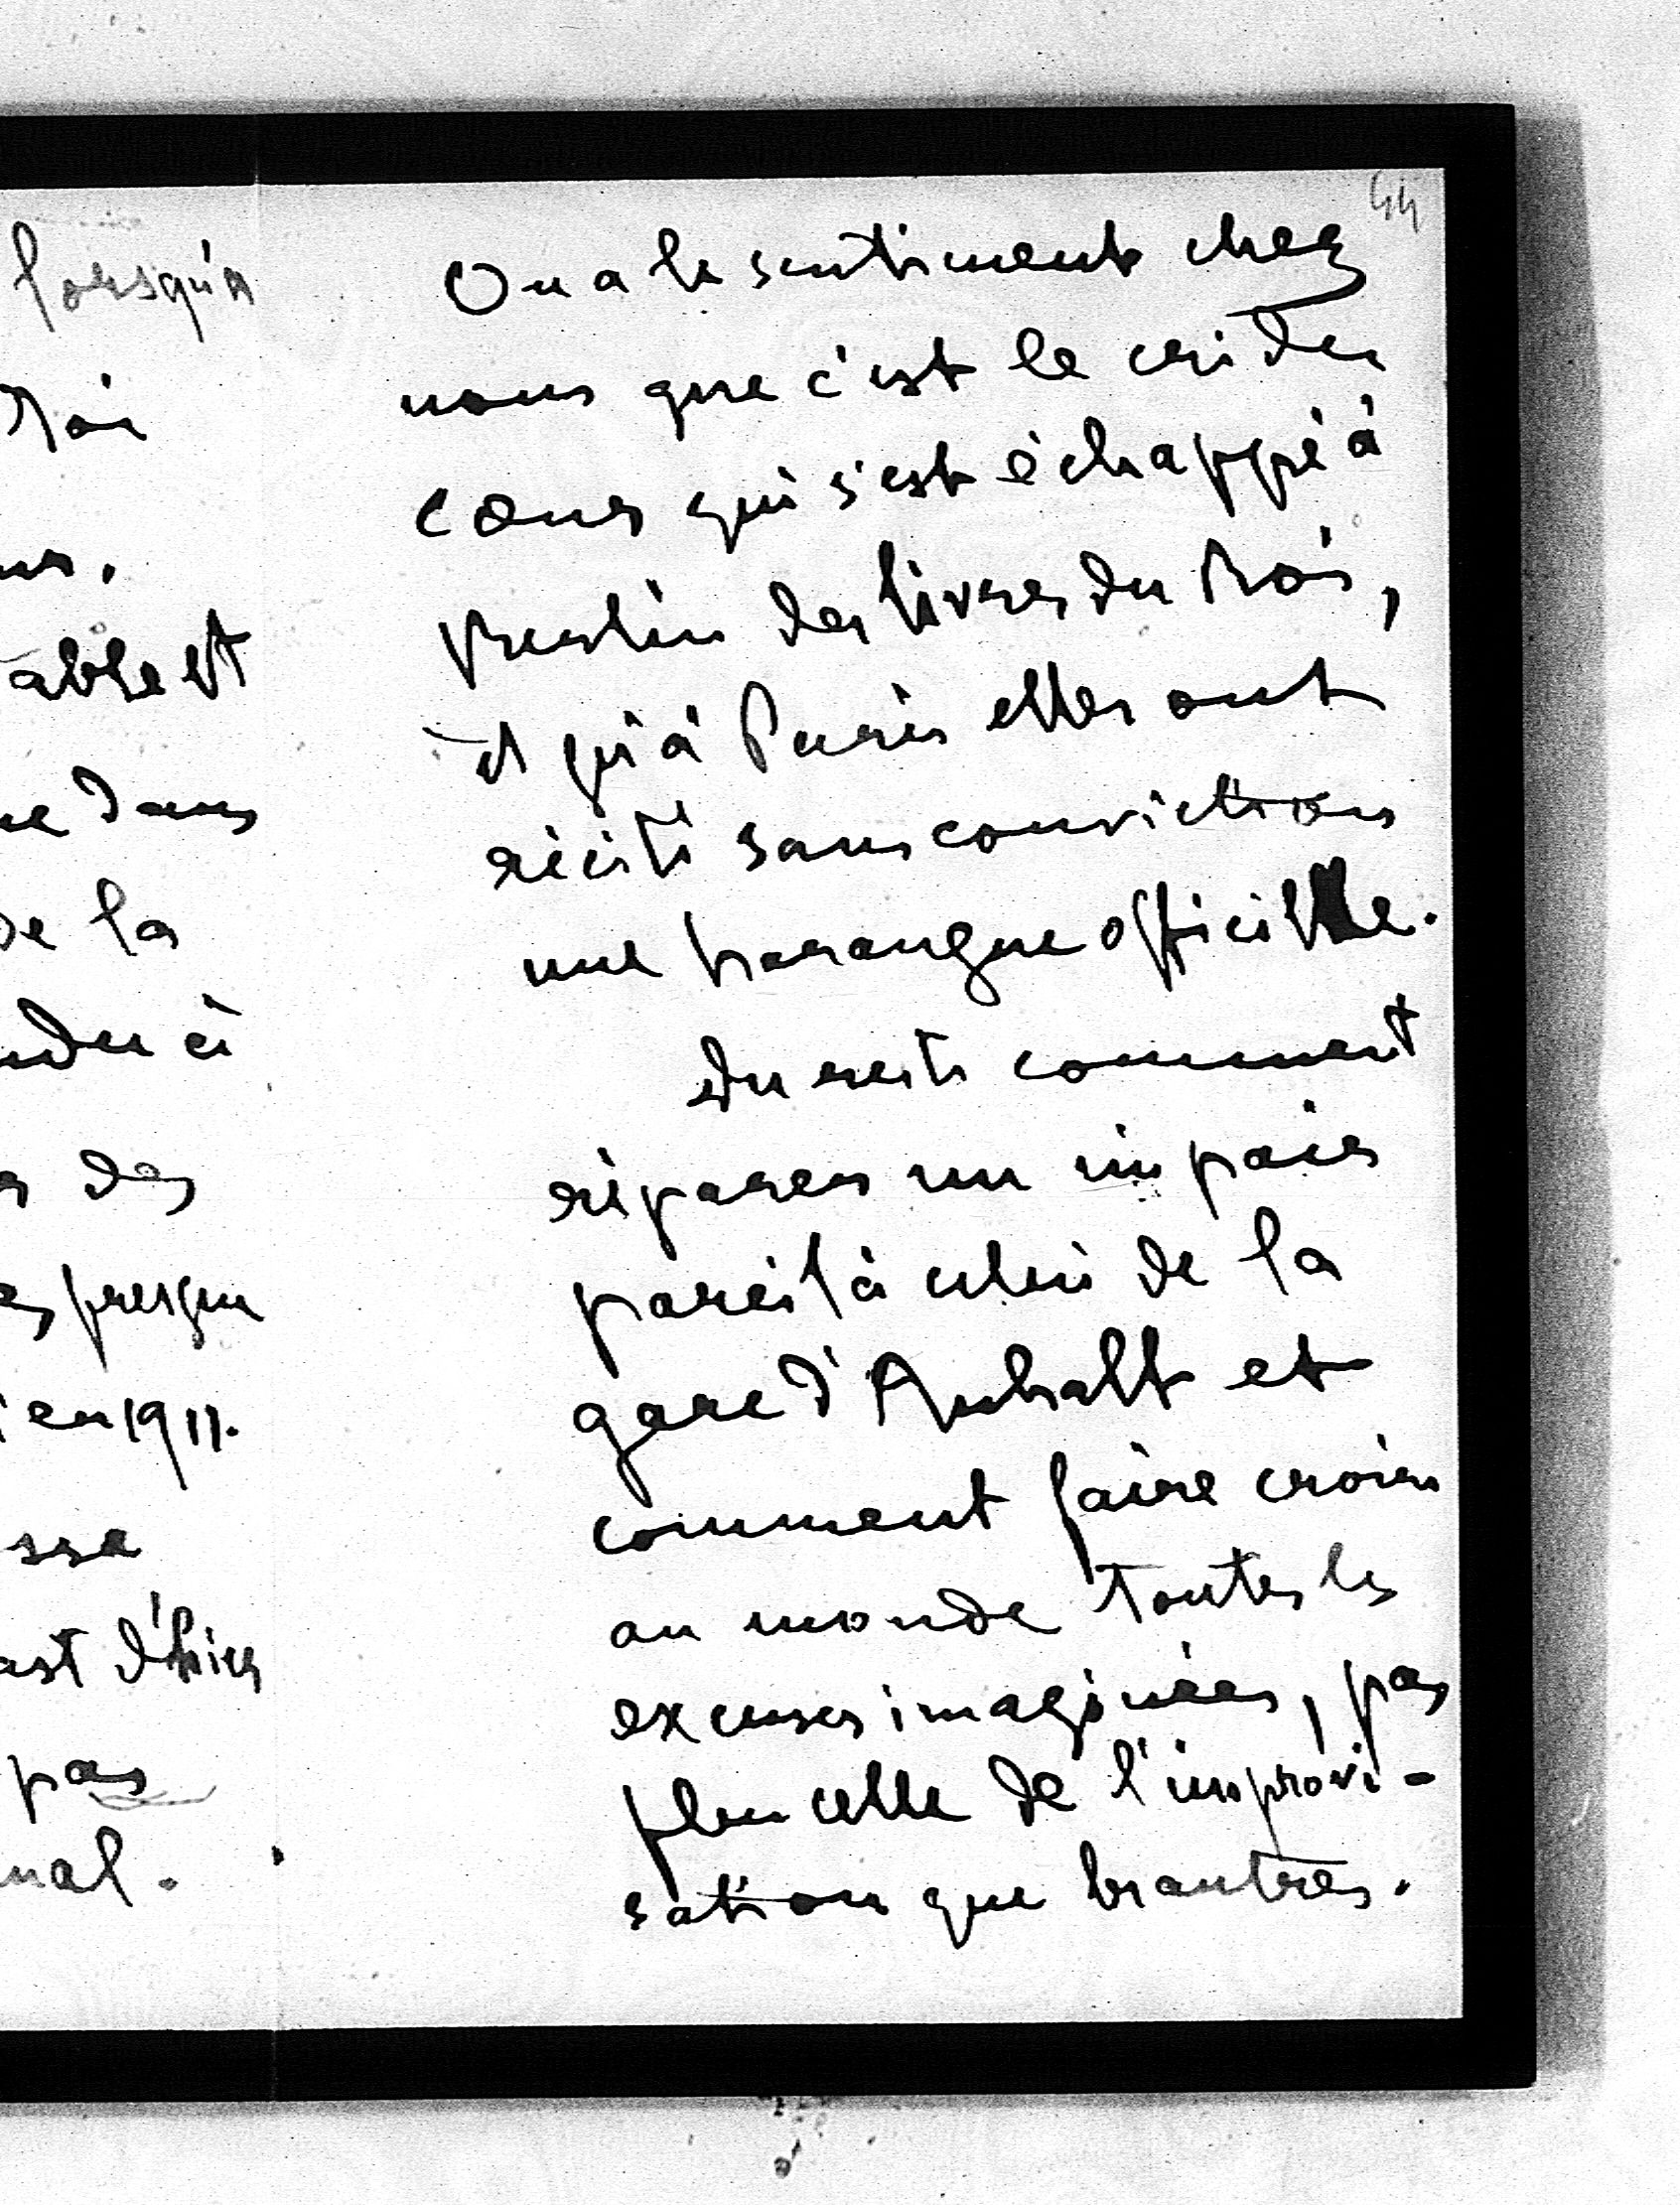 lorsqu'à
Roi
able et
dans
de la
à
des
presque
en 1911.
sse
d'hier
pas
nal.
44
On a le sentiment chez
nous que c'est le cri du
cœur qui s'est échappé à
Berlin des lèvres du Roi,
et qu'à Paris elles ont
récité sans conviction
une harangue officielle.
Du reste comment
réparer un impair
pareil à celui de la
gare d'Anhalt et
comment faire croire
au monde toutes les
excuses imaginées, pas
plus celle de l'improvi-
sation que les autres.